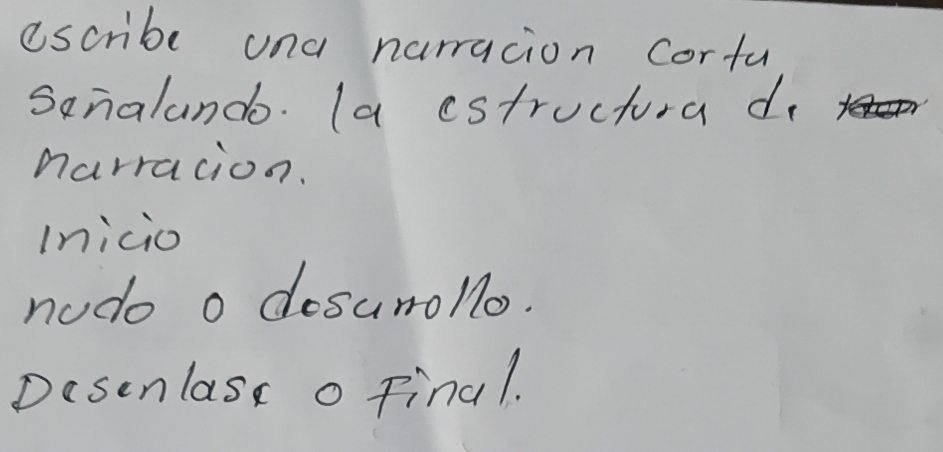 escribe una narracion corta
señalando. la estructura de
narracion.
inicio
nudo o desarrollo.
Desenlase o Final.